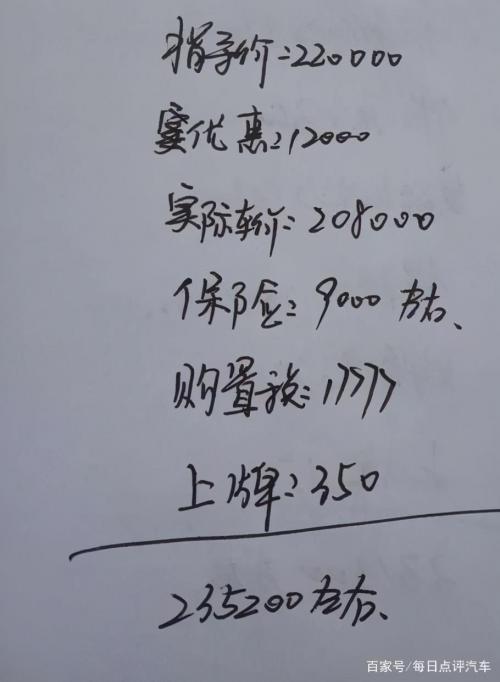 指导价:220000
实优惠:12000
实际车价:208000
保险应:9000左右、
购置税:17777
上牌:350
235200左右、
百家号/每日点评汽车